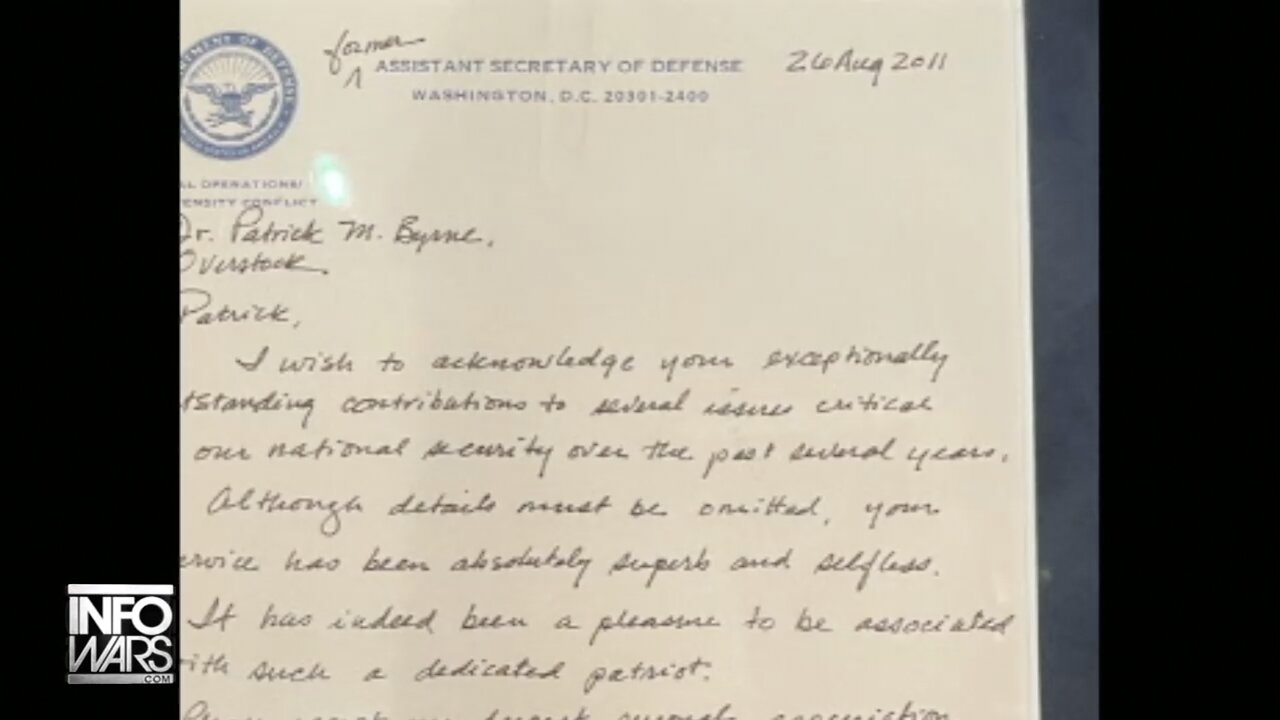 former
ASSISTANT SECRETARY OF DEFENSE 26 Aug 2011
WASHINGTON, D.C. 20301-2400
TMENT OF DEFENSE
L OPERATIONS/
ENSITY CONFLICT
Dr. Patrick M. Byrne,
Overstock.
Patrick,
I wish to acknowledge your exceptionally
tstanding contributions to several issues critical
our national security over the past several years.
Although details must be omitted, your
ervice has been absolutely superb and selfless.
It has indeed been a pleasure to be associated
ith such a dedicated patriot.
INFO
WARS
.COM